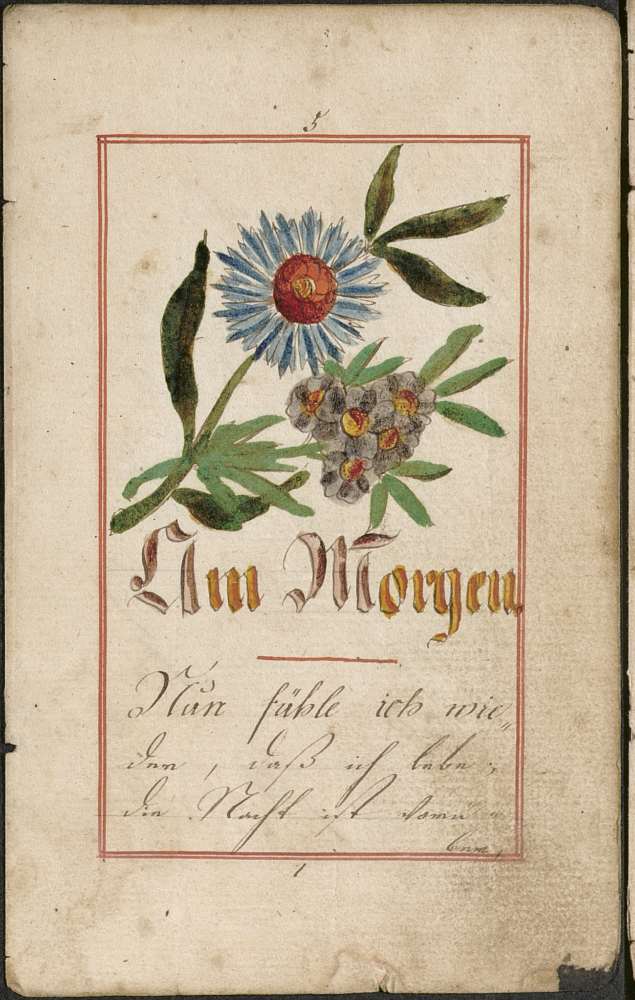 5
Am Morgen.
Nun fühle ich wie„
der, daß ich lebe;
die Nacht ist vorü„
ber,
1